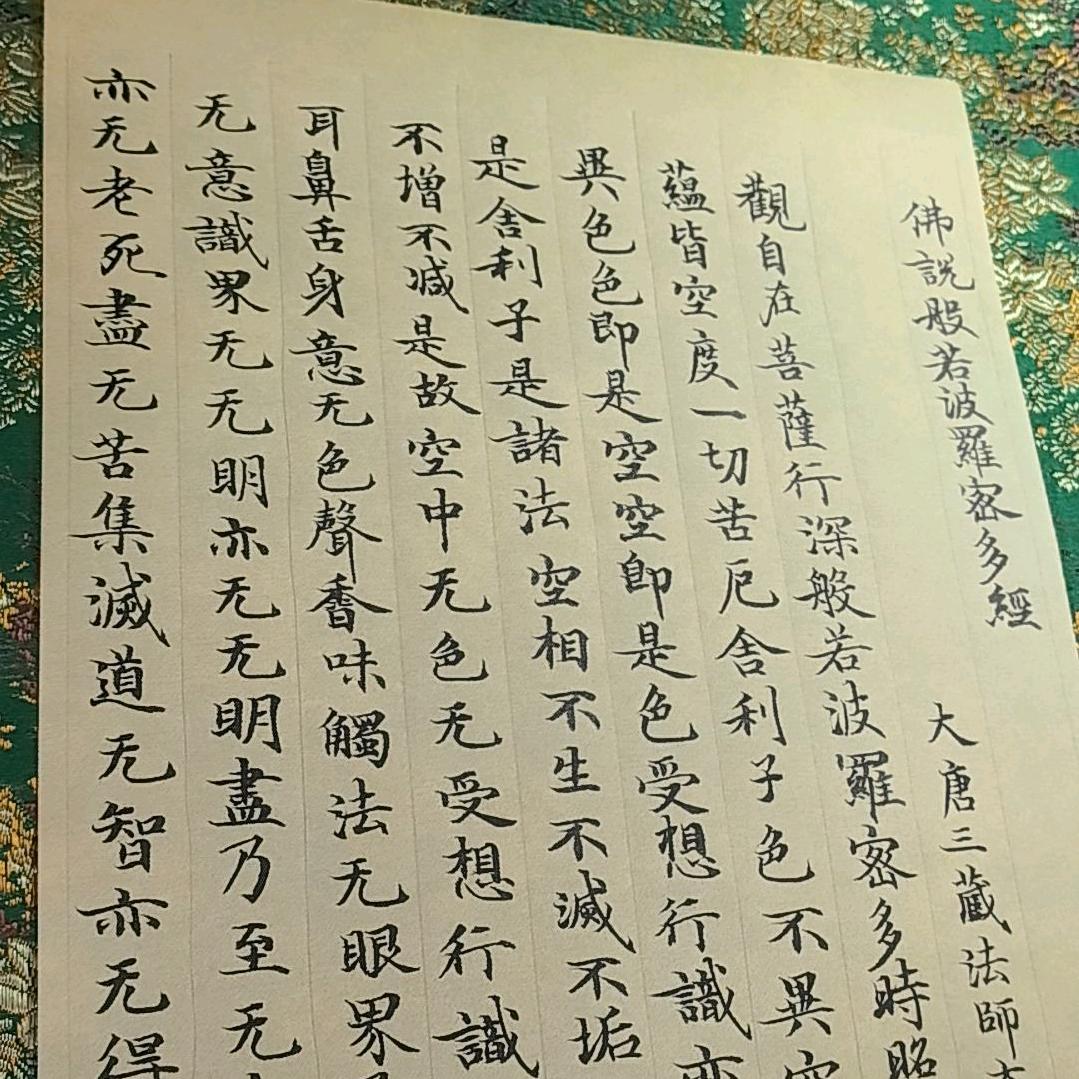 佛說般若波羅密多經 大唐三藏法師
觀自在菩薩行深般若波羅密多時照
蘊皆空度一切苦厄舍利子色不異空
異色色即是空空即是色受想行識亦
是舍利子是諸法空相不生不滅不垢
不增不減是故空中无色无受想行識
耳鼻舌身意无色聲香味觸法无眼界
无意識界无无明亦无无明盡乃至无
亦无老死盡无苦集滅道无智亦无得